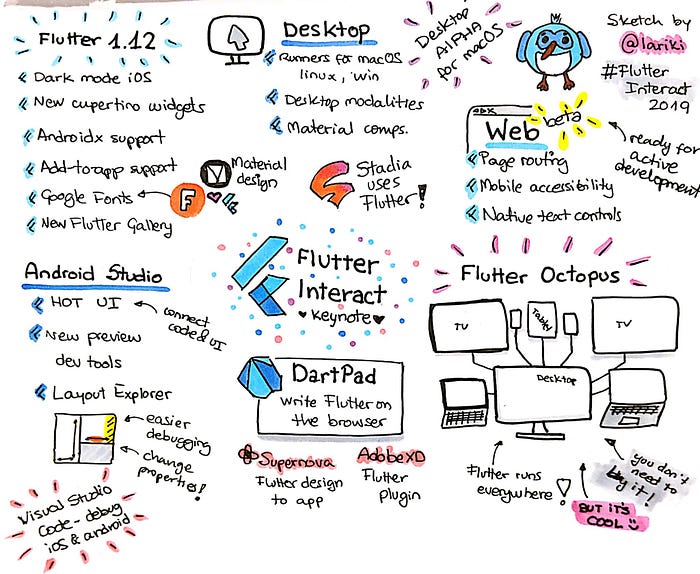 Flutter 1.12
Dark mode iOS
New cupertino widgets
Androidx support
Add-to-app support
Google Fonts
F
New Flutter Gallery
Material
design
Desktop
Runners for macOS
linux, win
Desktop modalities
Material comps.
Desktop
AlPHA
for macOS
Stadia
uses
Flutter!
Sketch by
@lariki
#Flutter
Interact
2019
Web
beta
Page routing
Mobile accessibility
Native text controls
ready for
active
development
Android Studio
HOT UI
connect
code & UI
New preview
dev tools
Layout Explorer
easier
debugging
change
properties!
Visual Studio
Code - debug
iOS & android
Flutter
Interact
♥ keynote ♥
DartPad
write Flutter on
the browser
Supernova
Flutter design
to app
AdobeXD
Flutter
plugin
Flutter Octopus
TV
Tablet
TV
Desktop
Flutter runs
everywhere!
you don't
need to
buy it!
BUT IT'S
COOL